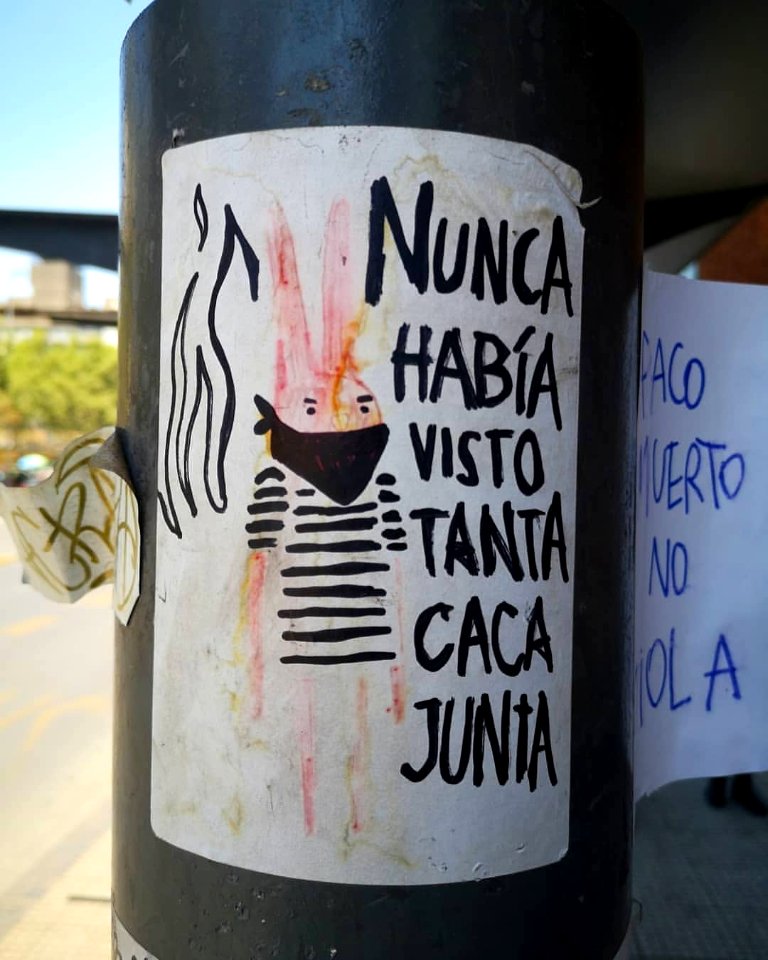 NUNCA
HABÍA
VISTO
TANTA
CACA
JUNTA
PACO
MUERTO
NO
VIOLA